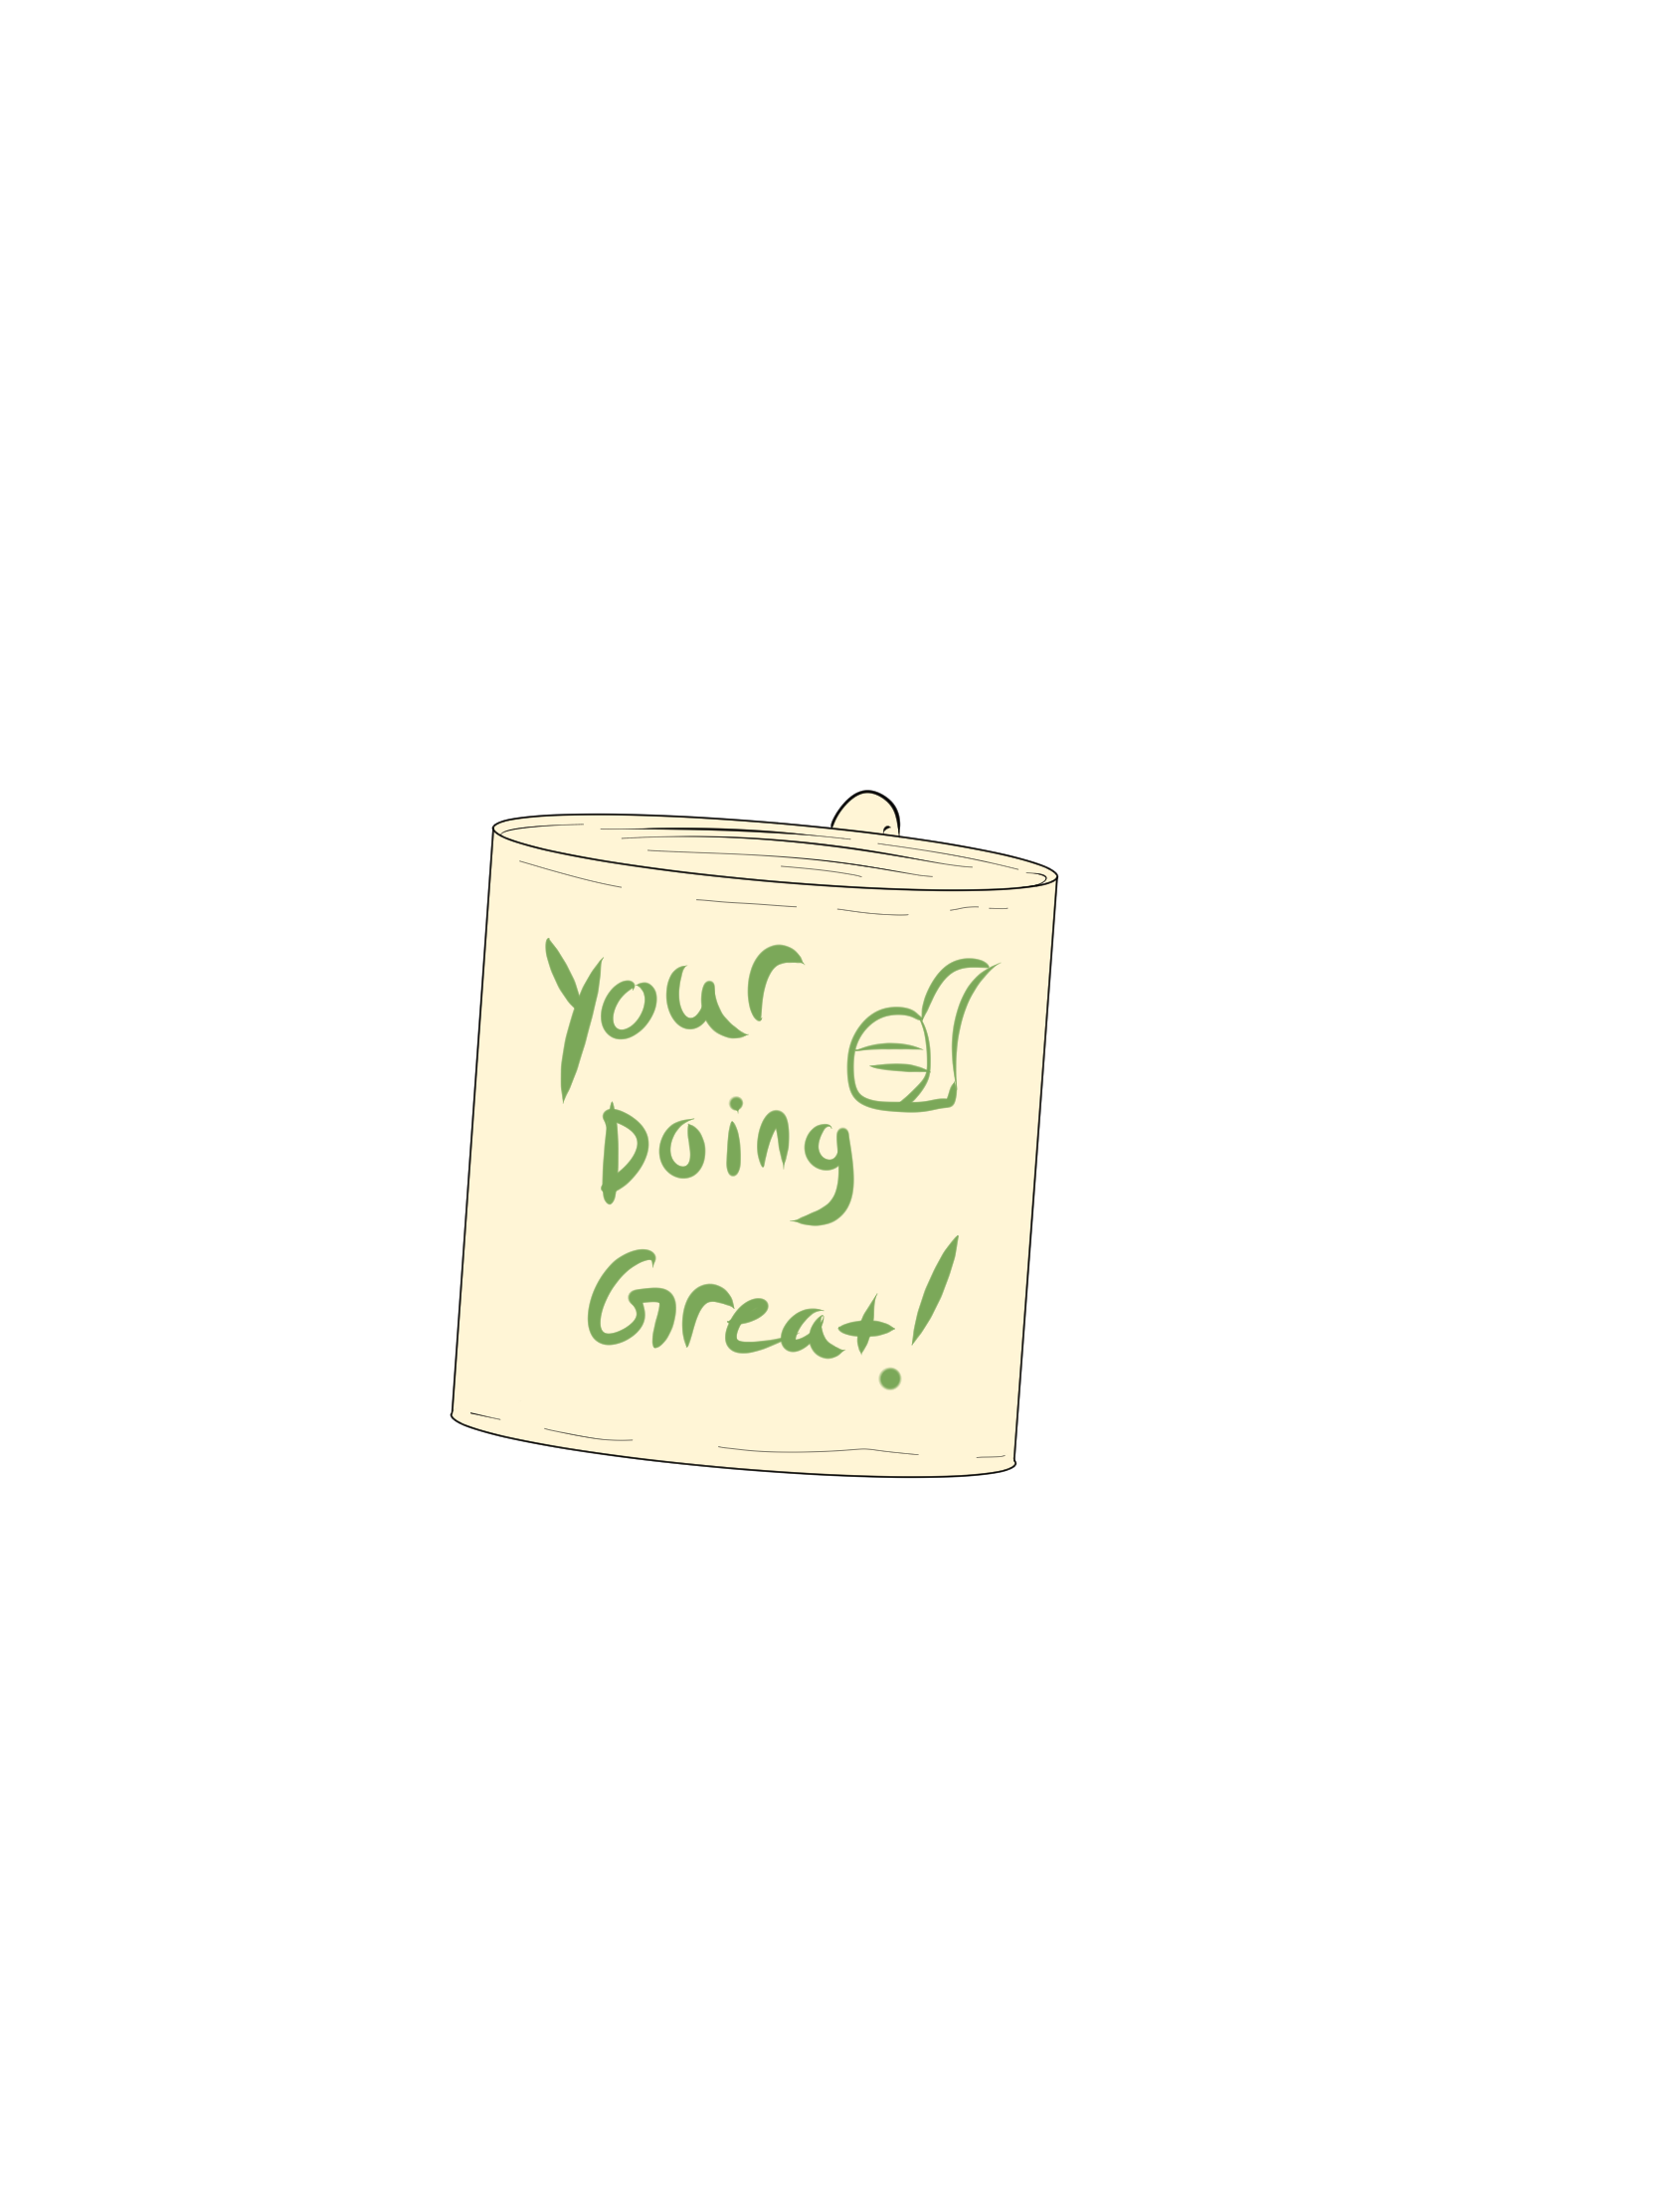 Your
Doing
Great!